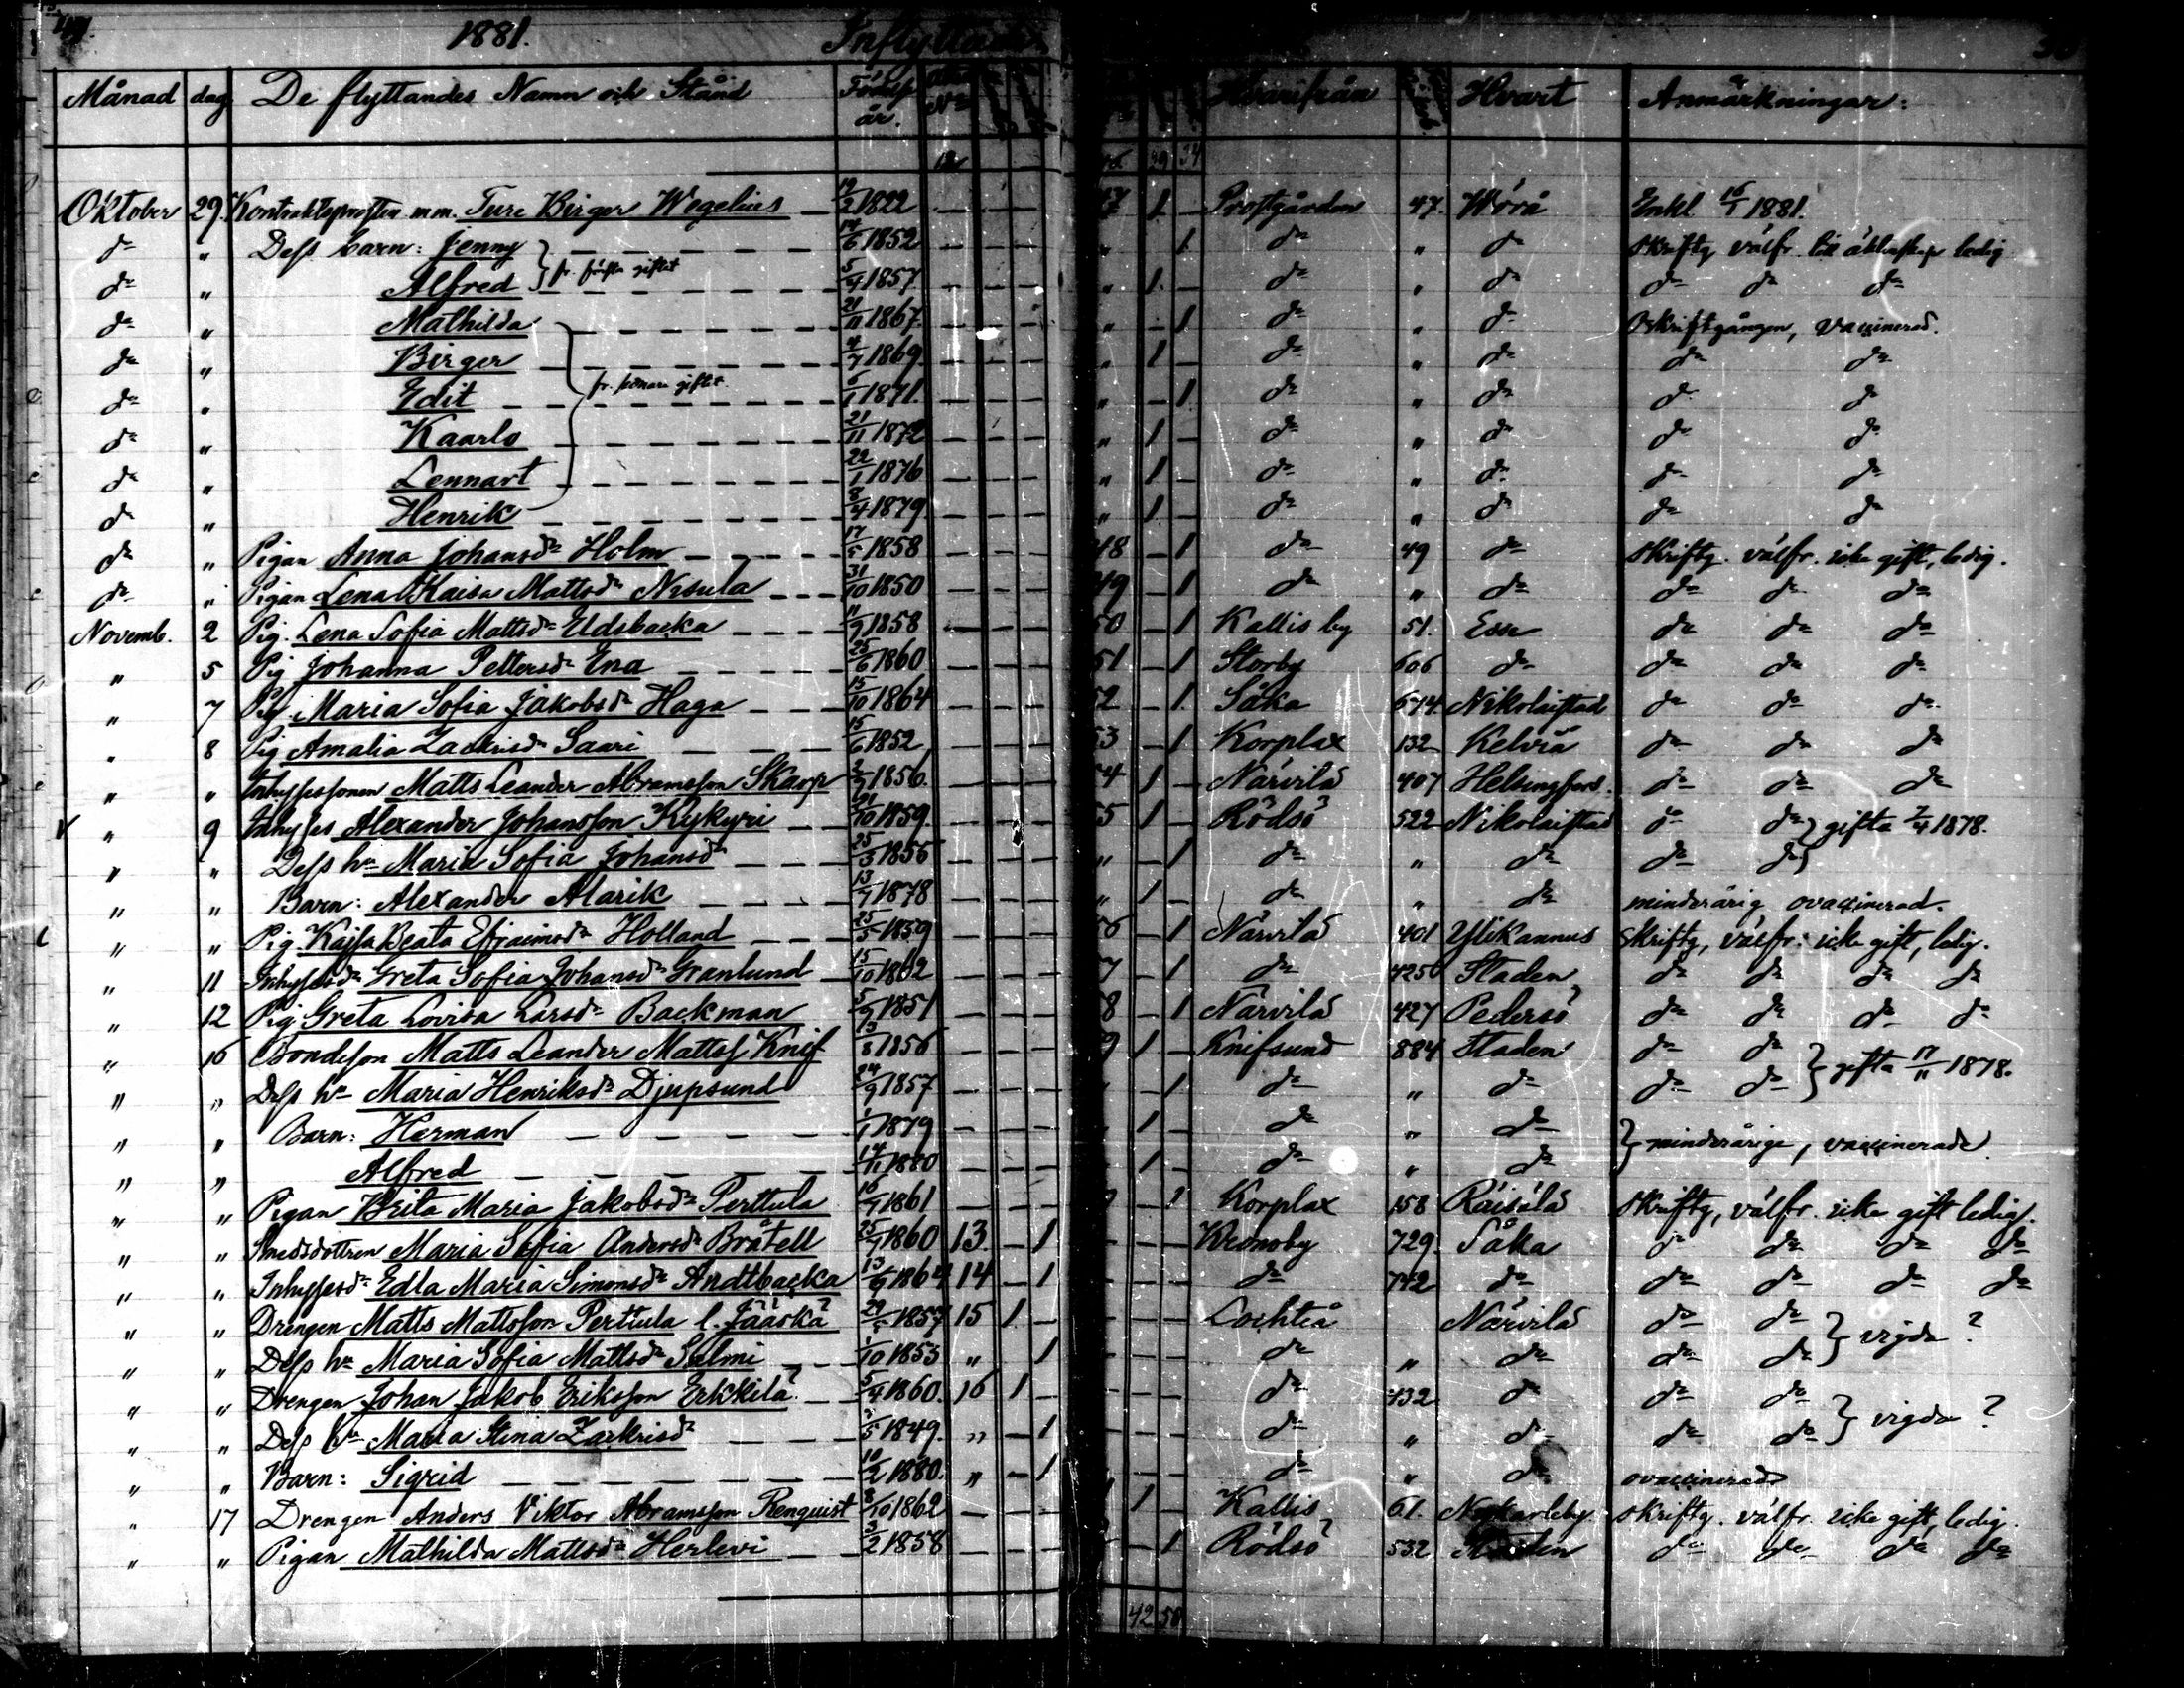 1881. Inflyttande
Månad dag De flyttandes Namn och Stånd Födsl. år. No Hvarifrån Hvart Anmärkningar.
12 39 34
Oktober 29 Kontraktsprosten m.m. Ture Birger Wegelius 1822 1 — Prostgården 47 Wörå Enkl 16/1 1881.
do " Dess barn: Jenny 14/6 1852 " 1 do " do skriftg välfr. till äktenskap ledig
do " Alfred } fr. första giftet 5/4 1857 " 1 do " do do do do
do " Mathilda 21/11 1867. " — 1 do " do Oskriftgången, vaccinerad.
do " Birger 4/7 1869 " 1 — do " do do do
do " Edit } fr. senare giftet. 6/1 1871. " — 1 do " do do do
do " Kaarlo 21/11 1872 " 1 — do " do do do
do " Lennart 22/1 1876 " 1 — do " do do do
do " Henrik 8/4 1879. " 1 — do " do do do
do " Pigan Anna Johansdr Holm 17/5 1858 48 — 1 do 49 do skriftg. välfr. icke gift, ledig.
do " Pigan Lena Kaisa Mattsdr Nisula 31/10 1850 49 — 1 do " do do do do
Novemb. 2 Pig. Lena Sofia Mattsdr Eldsbacka 11/9 1858 50 — 1 Kallis by 51. Esse do do do
" 5 Pig Johanna Pettersdr Ena 25/6 1860 51 — 1 Storby 606 do do do do
" 7 Pig. Maria Sofia Jakobsdr Haga 15/10 1864 52 — 1 Såka 674. Nikolaistad do do do
" 8 Pig Amalia Zachrisdr Saari 15/6 1852 53 — 1 Korplax 132 Kelviå do do do
" " Inhysessonen Matts Leander Abramsson Skarp 2/9 1856. 54 1 — Närvilä 407 Helsingfors. do do do
" 9 Inhyses Alexander Johansson Kykyri 10 1859. 55 1 — Rödsö 522 Nikolaistad do do } gifta 7/4 1878.
" " Dess h. Maria Sofia Johansdr 25/3 1855 " — 1 do " do do do }
" " Barn: Alexander Alarik 13/7 1878 " 1 do " do minderårig ovaccinerad.
" " Pig. Kajsa Beata Efraimsdr Holland 25/5 1859 56 — 1 Närvilä 401 Ylikannus Skriftg, välfr. icke gift, ledig.
" 11 Inhysesdr Greta Sofia Johansdr Granlund 15/10 1862 7 — 1 do 425 Staden do do do do
" 12 Pig Greta Lovisa Larsdr Backman 5/9 1851 8 — 1 Närvilä 427 Pedersö do do do do
" 16 Bondeson Matts Leander Mattss Knif 13/8 1856 9 1 — Knifsund 884 Staden do do } gifta 17/11 1878.
" " Dess h. Maria Henriksdr Djupsund 24/9 1857 1 do " do do do
" " Barn: Herman 1/1 1879 1 do " do } minderårige, vaccinerade.
" " Alfred 14/11 1880 1 — do " do
" " Pigan Brita Maria Jakobsdr Perttula 16/7 1861 — 1 Korplax 158 Räisälä Skriftg, välfr. icke gift ledig.
" " Smedsdottren Maria Sofia Andersdr Bråtell 25/7 1860 13. — 1 Kronoby 729. Såka do do do do
" " Inhysesdr Edla Maria Simonsdr Andtbacka 13/9 1864 14 — 1 do 742 do do do do do
" " Drengen Matts Mattsson Perttula l. Jääskä 29 1857 15 1 — Lochteå Närvilä do do } vigda?
" " Dess h. Maria Sofia Mattsdr Salmi 1/10 1853 " 1 do " do do do
" " Drengen Johan Jakob Eriksson Erkkilä 5/4 1860. 16 1 — do 132 do do do } vigda?
" " Dess h. Maria Stina Zachrisdr 5 1849. " — 1 do " do do do
" " Barn: Sigrid 10/2 1880. " — 1 do " do ovaccinerad
" 17 Drengen Anders Viktor Abramsson Renquist 8/10 1862 1 — Kallis 61. Nykarleby skriftg. välfr. icke gift, ledig.
" " Pigan Mathilda Mattsdr Herlevi 3/2 1858 — 1 Rödsö 532 Staden do do do do
42 50